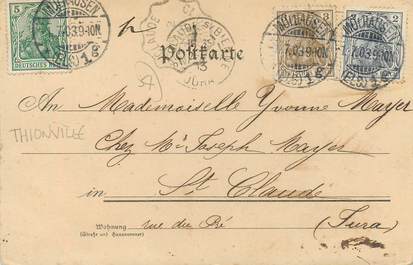 5
DEUTSCHES REICH
MÜLHAUSEN
7.03.9-10N.
(ELS)1g
ST CLAUDE
JURA
Postkarte
MÜLHAUSEN
7.03.9-10N.
(ELS)1g
3
2
37
An Mademoiselle Yvonne Mayer
THIONVILLE
Chez Mr Joseph Mayer
in St Claude
Wohnung rue du Pré (Jura)
(Straße und Hausnummer)